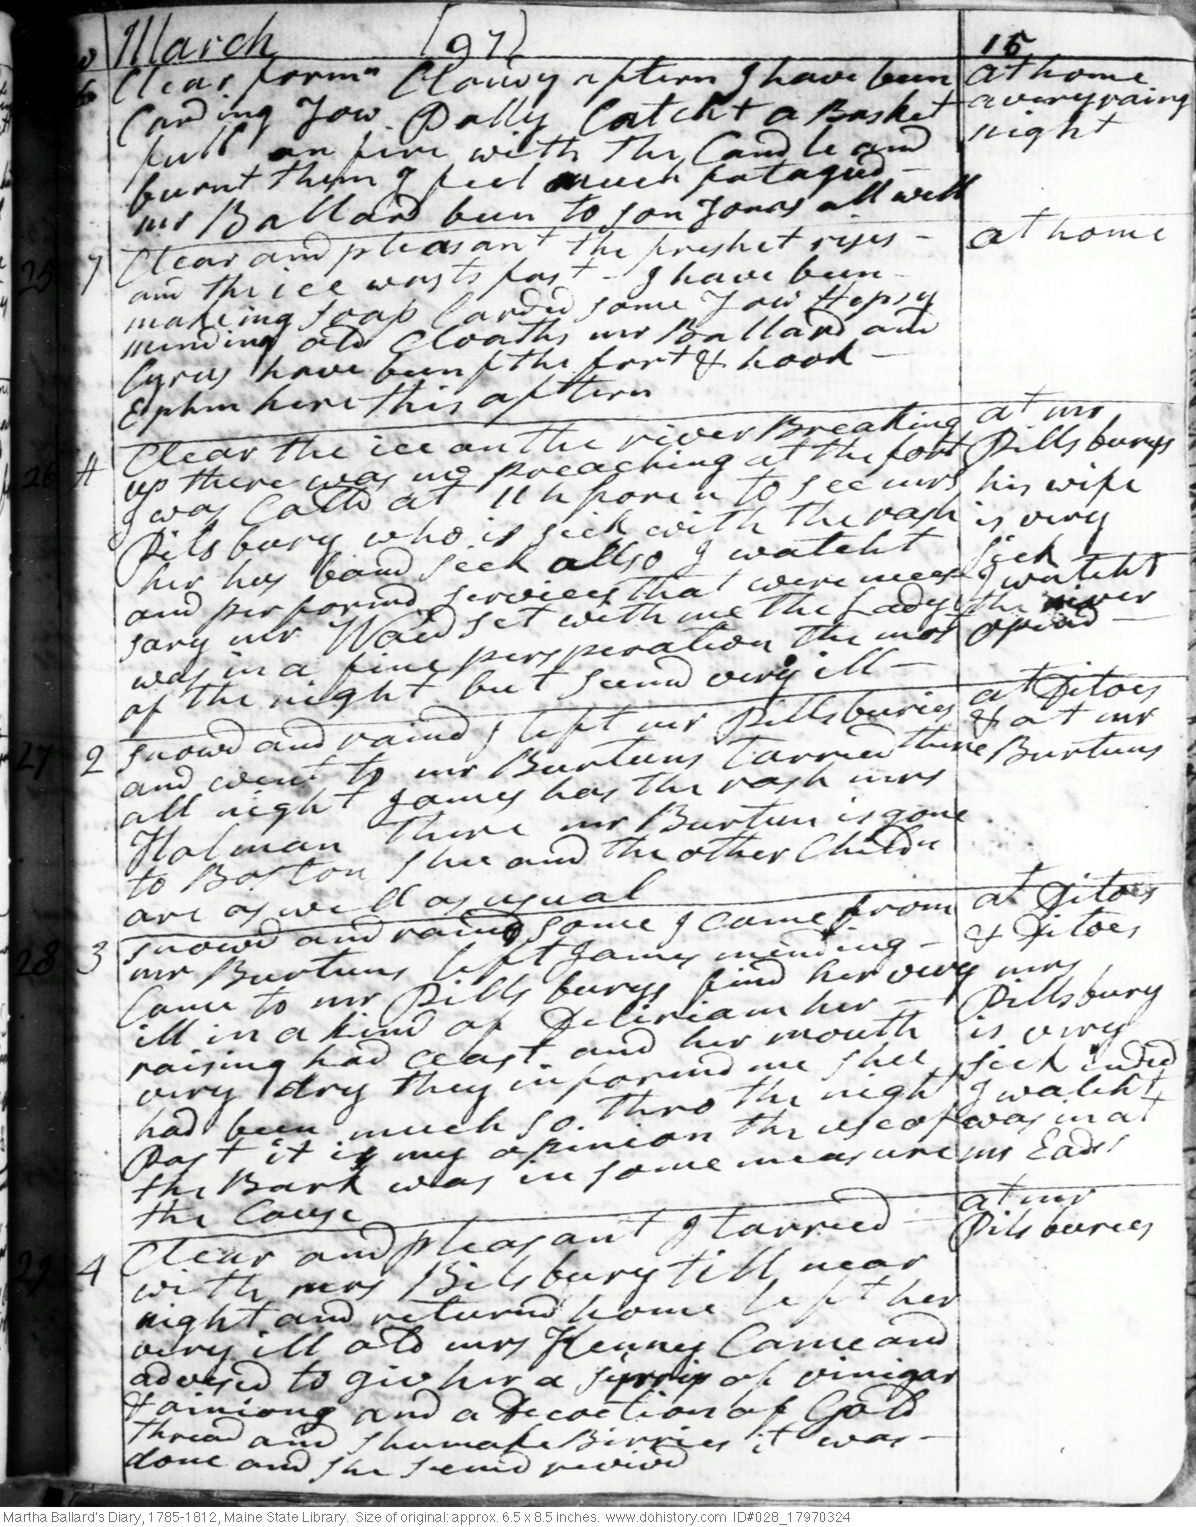 March [97] 15
Clear formn Cloudy aftern I have been at home
Carding Tow. Dolly Catcht a Basket a very rainy
full on fire with the Candle and night
burnt them I feel much fatagud
mr Ballard been to son Jonas all well
25 7 Clear and pleasant the freshet rises - at home
and the ice wasts fast - I have been
making soap Carded some Tow Hepsy
minding old Cloaths mr Ballard and
Cyrus have been f the fort & hook -
Ephm here this aftern
26 A Clear the ice on the river Breaking at mr
up there was no preaching at the fort Pillsburys
I was Calld at 11 h foren to see mrs his wife
Pilsbury who is sick with the rash is very
her husband sick allso I watcht sick
and performd services that were neces I watcht
sary mr Waid set with me the Lady the river
was in a fine persperation the most opind -
of the night but seemd very ill -
27 2 snowd and raind I left mr Pillsburies at Ditoes
and went to mr Burtuns tarried there & at mr
all night James has the rash mrs Burtuns
Holman there mr Burtun is gone
to Boston shee and the other Childn
are as well as usual
28 3 snowd and raind some I came from at Ditoes
mr Burtuns left James minding - & Ditoes
Came to mr Pillsburys find her very mrs
ill in a kind of Deliriam her - Pillsbury
raising had ceast and her mouth is very
very dry they informd me shee sick inded
had been much so. thro the night I watcht
Past it is my opinion the use of was in at
the Bark was in some measure mr Eads
the Cause
29 4 Clear and pleasant I tarried - at mr
with mrs Pilsbury till near Pilsburies
night and returnd home left her
very ill old mrs Kenney Came and
advised to giv her a syrrip of vinigar
& oiniong and a Decoction of Gold
thread and shumake Birries it was -
done and she seemd revivd
Martha Ballard's Diary, 1785-1812, Maine State Library. Size of original: approx. 6.5 x 8.5 inches. www.dohistory.com ID#028_17970324